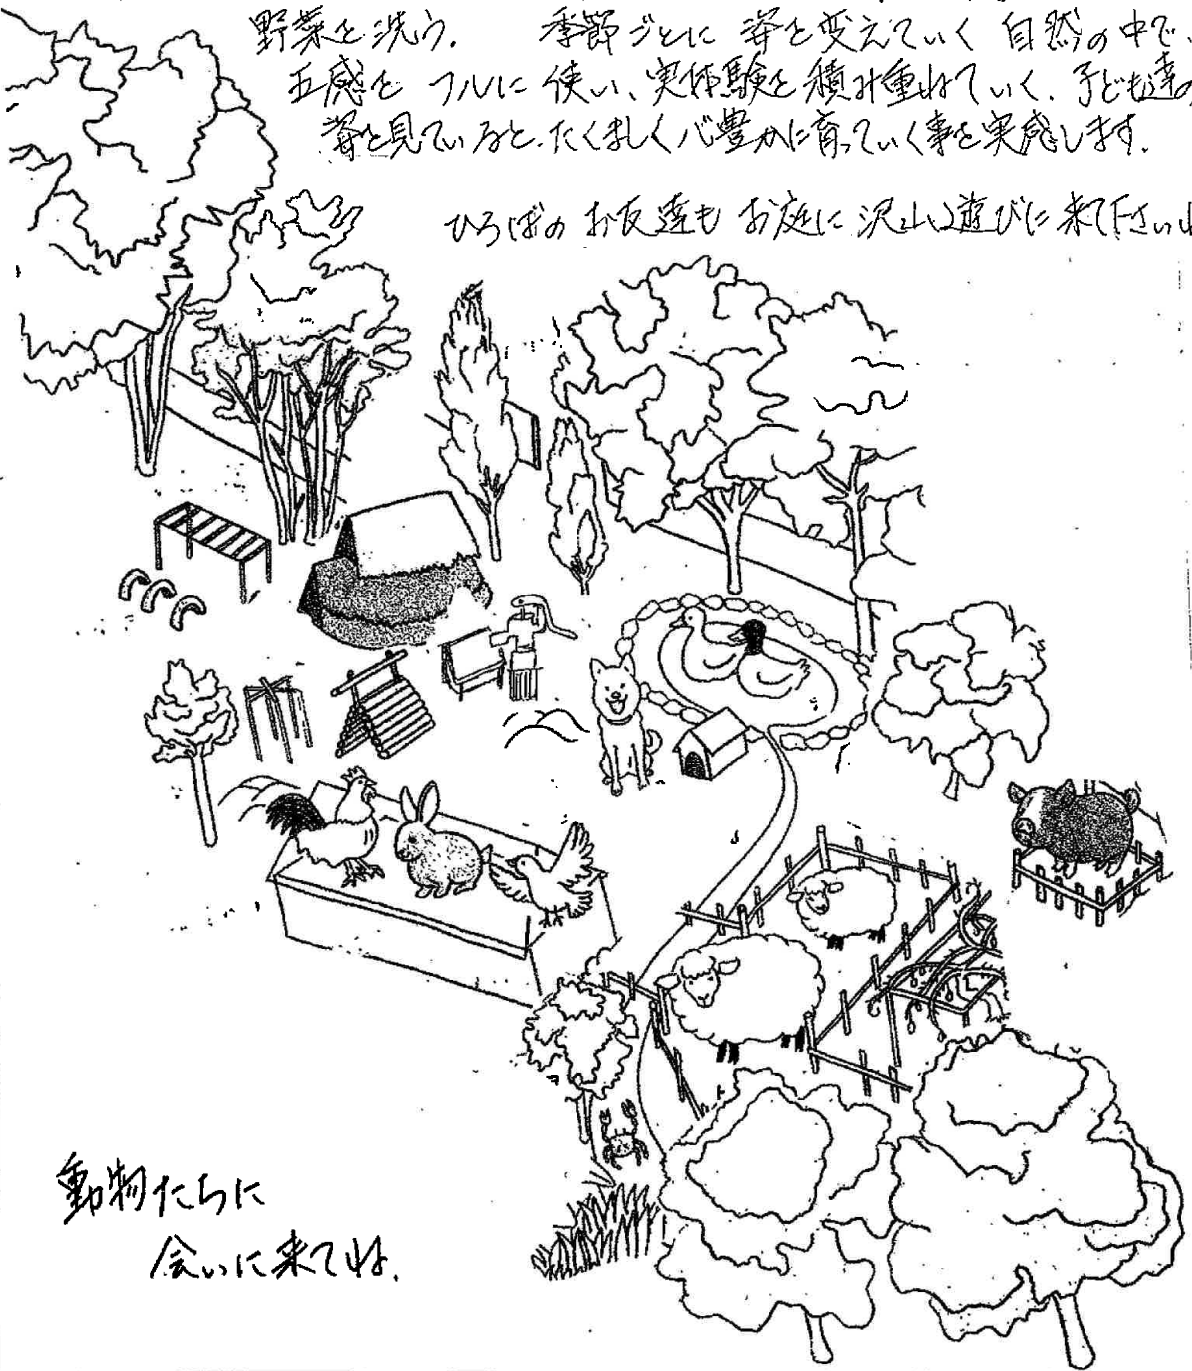 野菜を洗う. 季節ごとに姿を変えていく自然の中で、
五感をフルに使い、実体験を積み重ねていく、子ども達の
姿を見ていると、たくましく心豊かに育っていく事を実感します.
ひろばのお友達もお庭に沢山遊びに来て下さいね
動物たちに
会いに来てね.